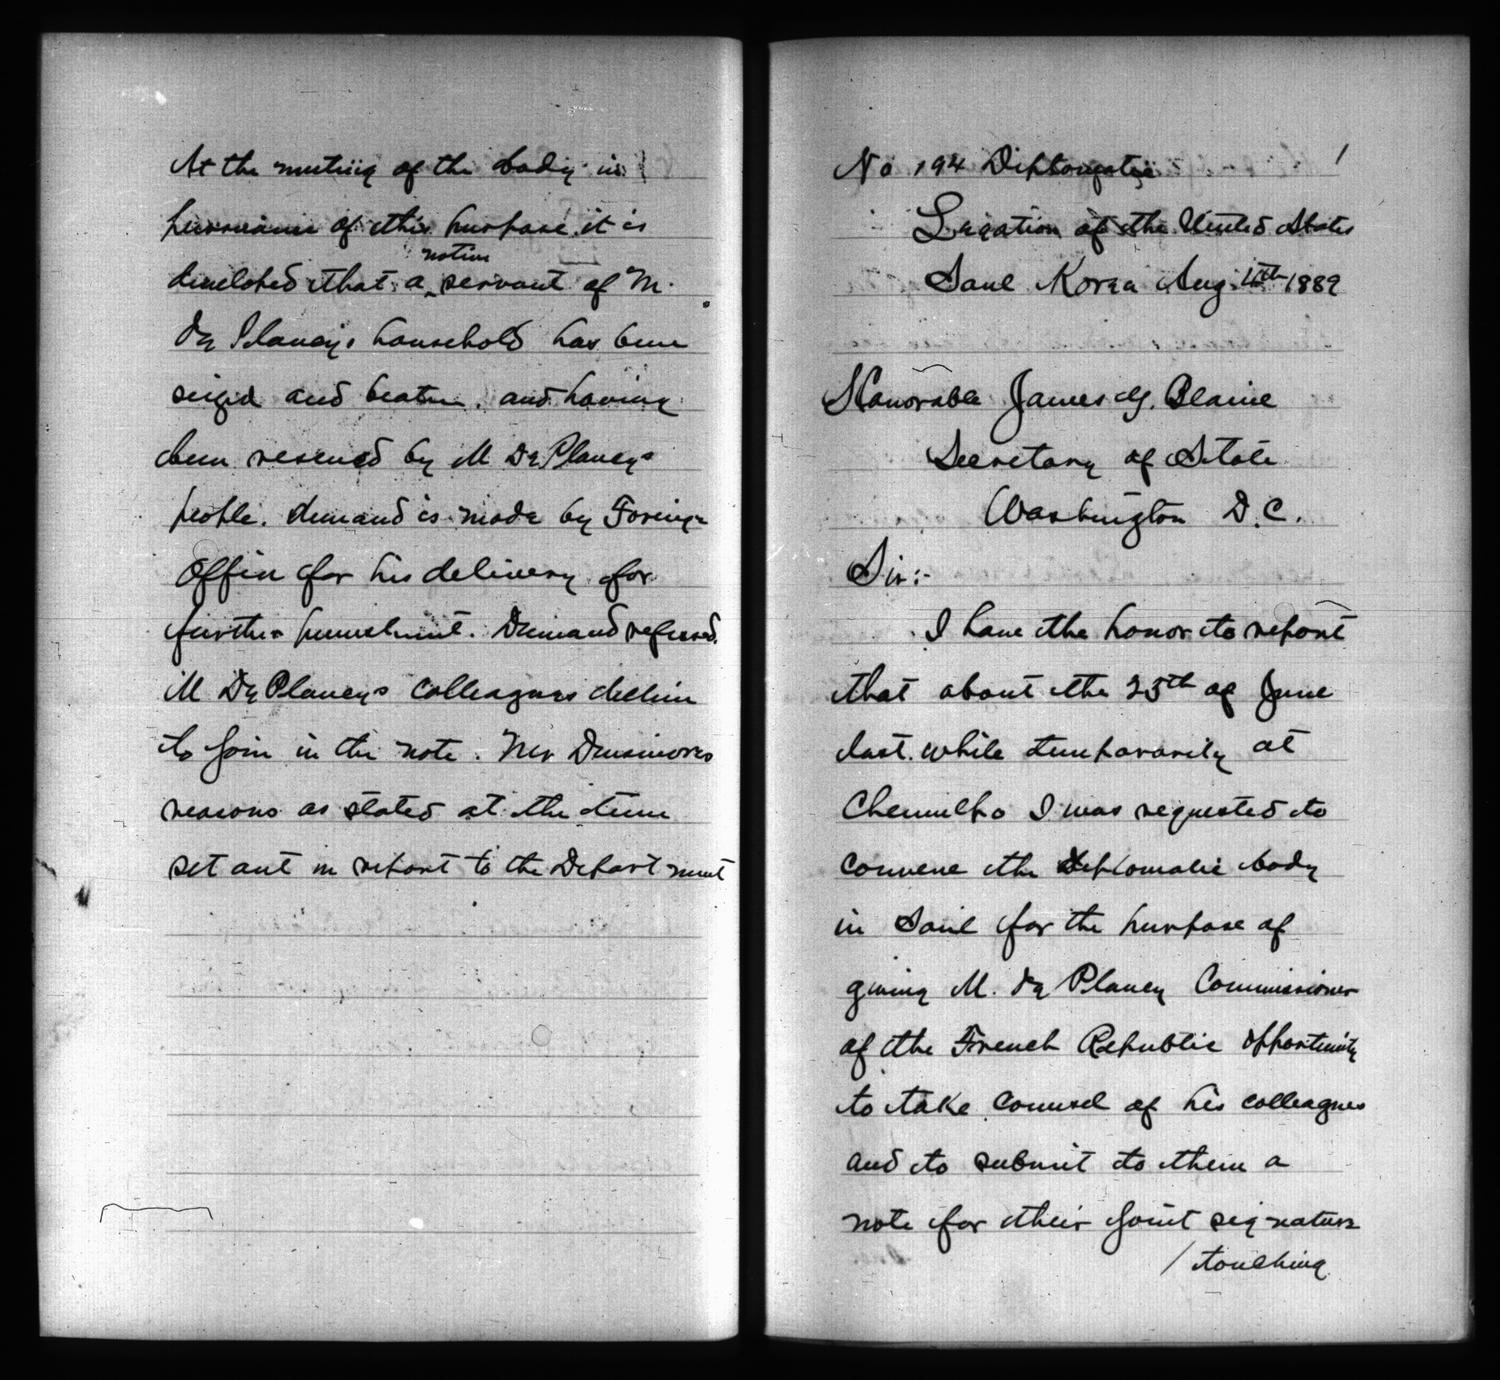 At the meeting of the body in
pursuance of this purpose it is
native
developed that a servant of M.
De Plancy's household has been
seized and beaten, and having
been rescued by M De Plancy's
people. demand is made by Foreign
Office for his delivery for
further punishment. Demand refused.
M De Plancy's colleagues decline
to join in the note. Mr Dinsmore's
reasons as stated at the time
set out in report to the Department
No 194 Diplomatic
1
Legation of the United States
Söul Korea Aug. 1889
Honorable James G. Blaine
Secretary of State
Washington D.C.
Sir:-
I have the honor to report
that about the 25th of June
last. while temporarily at
Chemulpo I was requested to
convene the diplomatic body
in Söul for the purpose of
giving M. de Plancy Commissioner
of the French Republic opportunity
to take counsel of his colleagues
and to submit to them a
note for their joint signature
/ touching